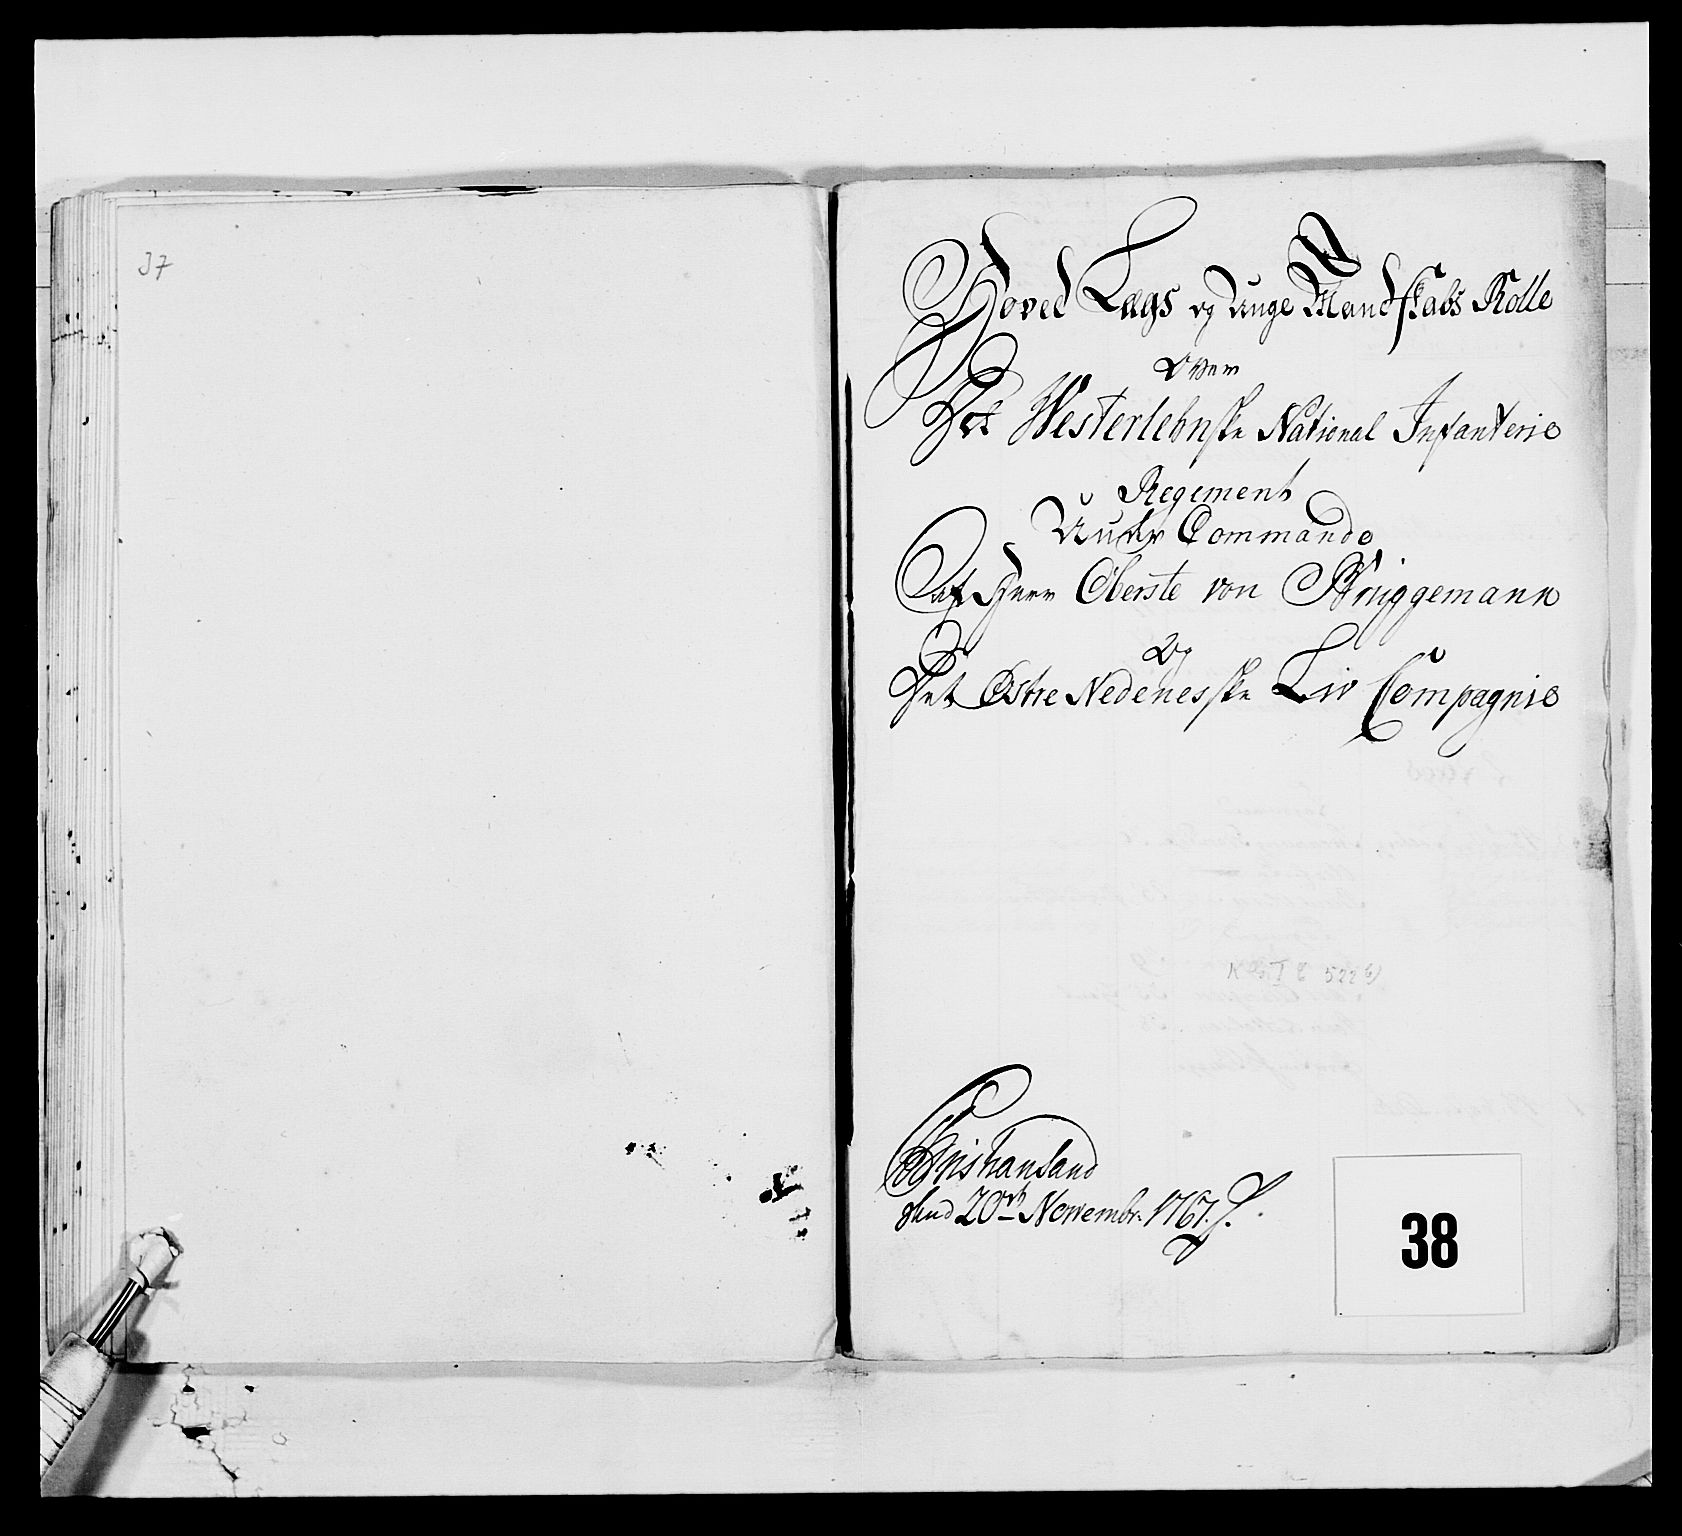 37
Hoved Lægs og Unge Mandskabs Rolle
Over
Det Westerlehnske National Infanterie
Regement
Under Commando
af Herr Oberste von Brüggemann
Og
Det Østre Nedenesske Liv Compagnie
Christiansand
dend 20de Novembr. 1767.
38